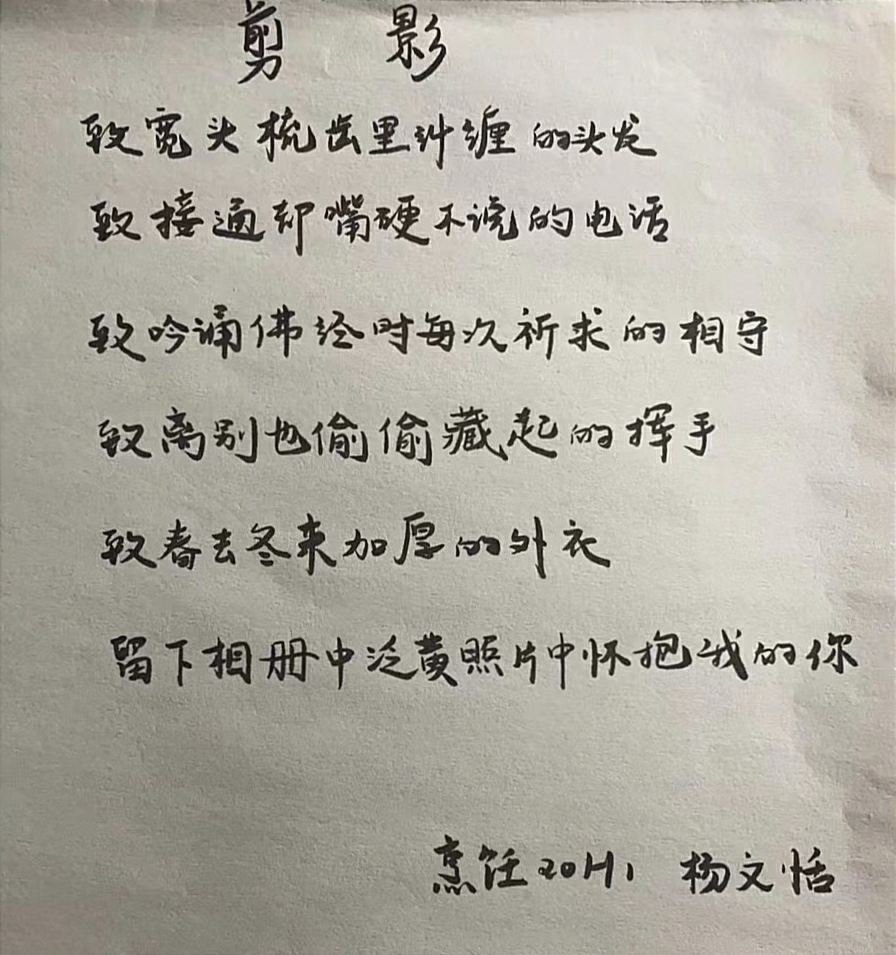 剪影
致宽头梳齿里纠缠的头发
致接通却嘴硬不说的电话
致吟诵佛经时每次祈求的相守
致离别也偷偷藏起的挥手
致春去冬来加厚的外衣
留下相册中泛黄照片中怀抱我的你
烹饪20H1 杨文恬